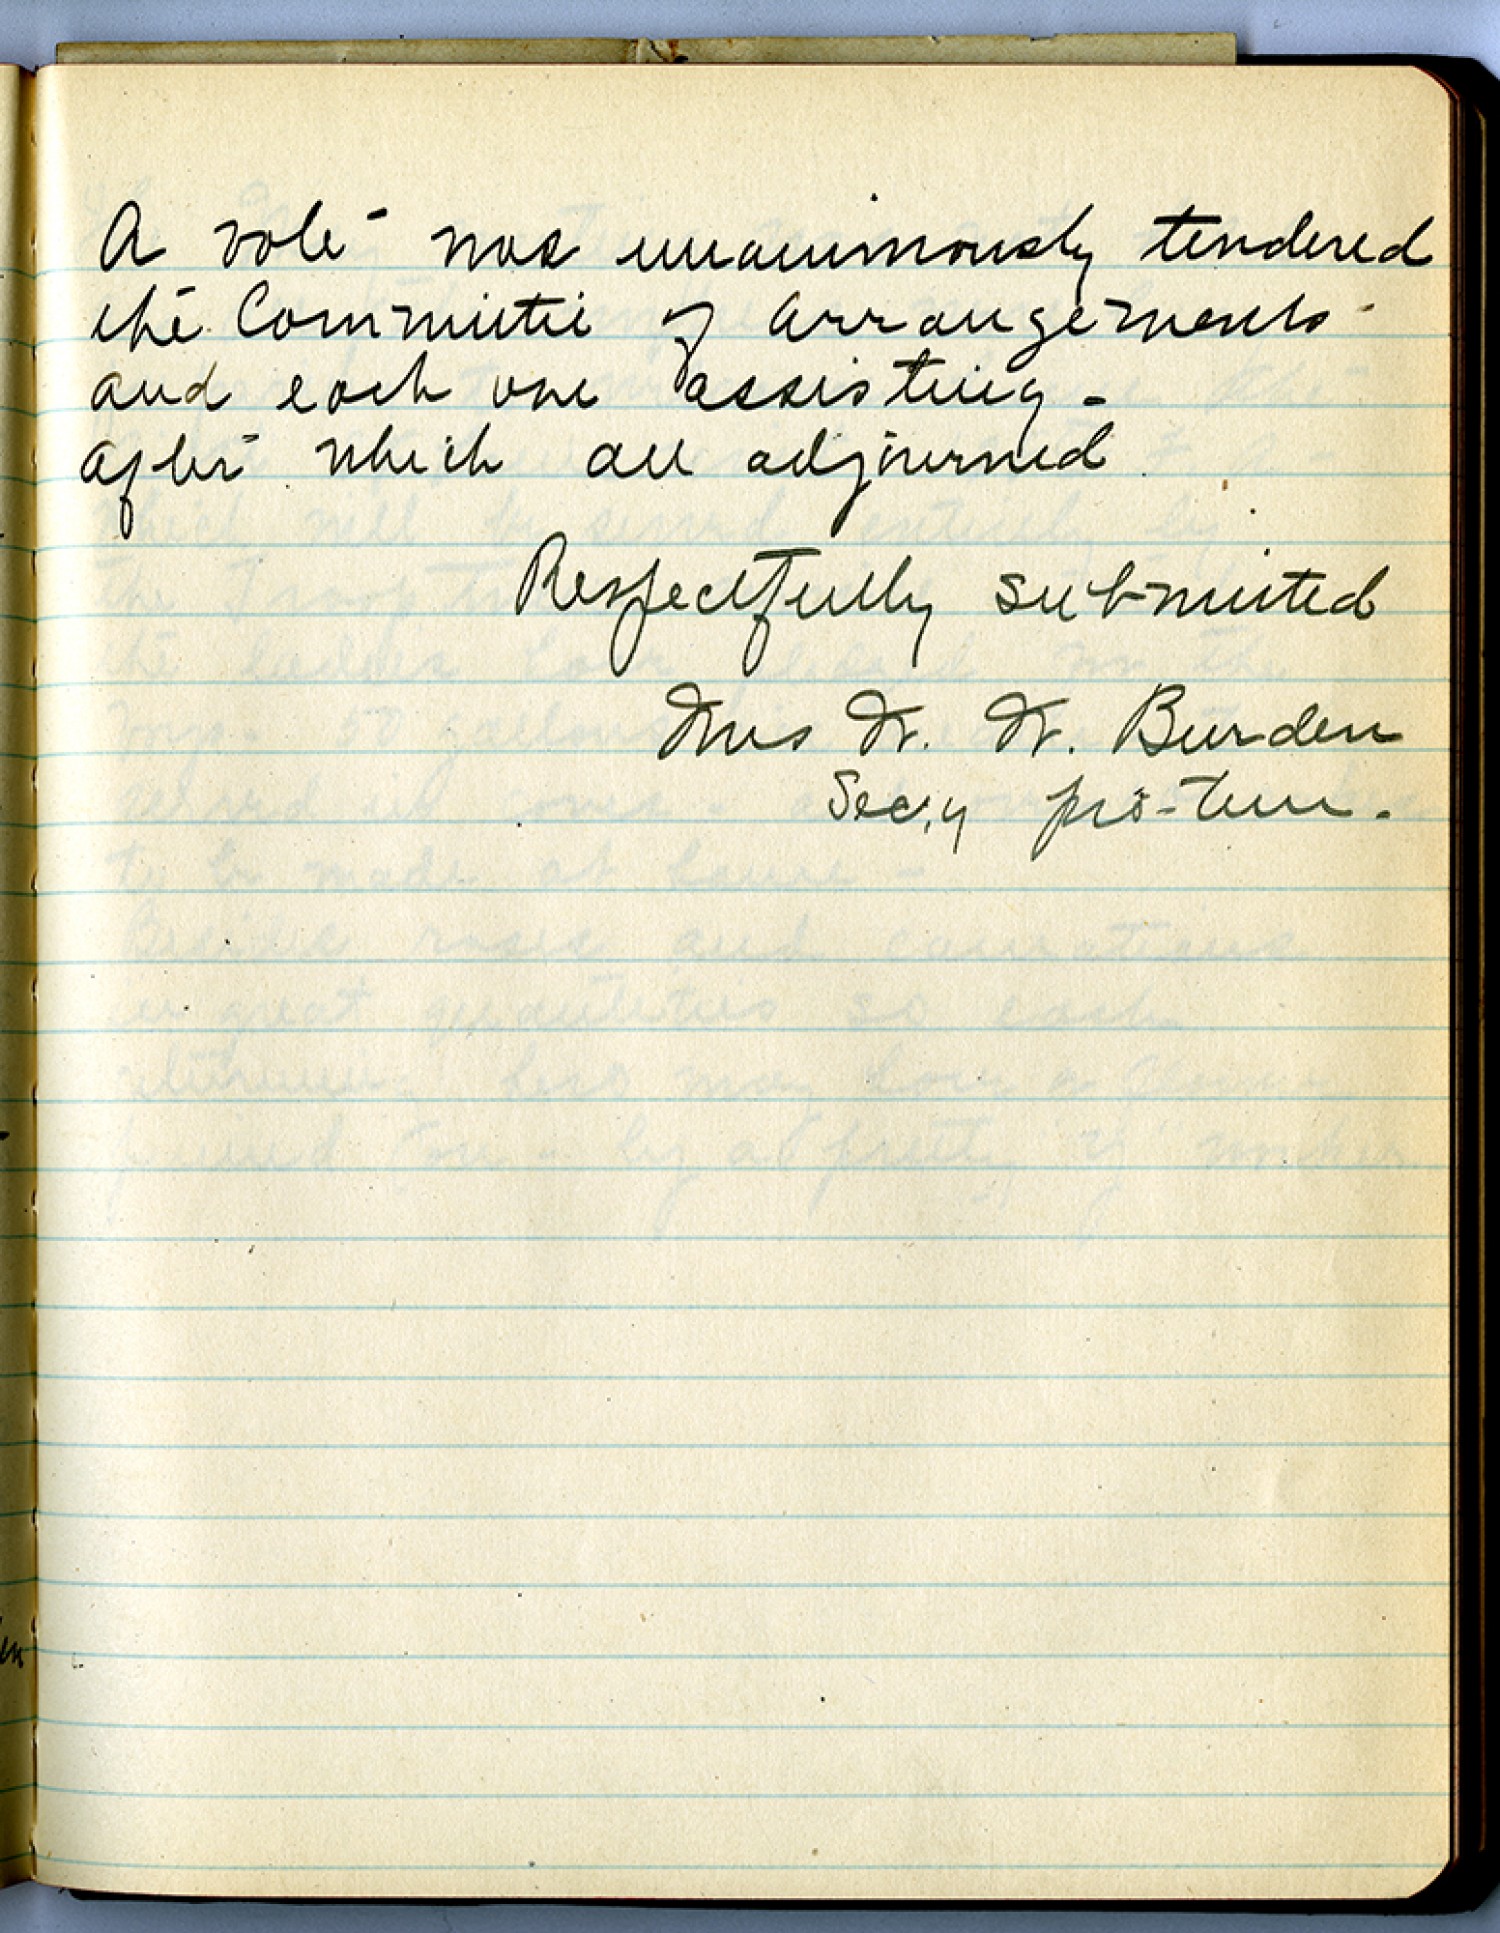 A vote was unanimously tendered
the Committee of Arrangements
and each one assisting -
after which all adjourned
Respectfully submitted
Mrs W. W. Burden
Sec'y pro-tem.